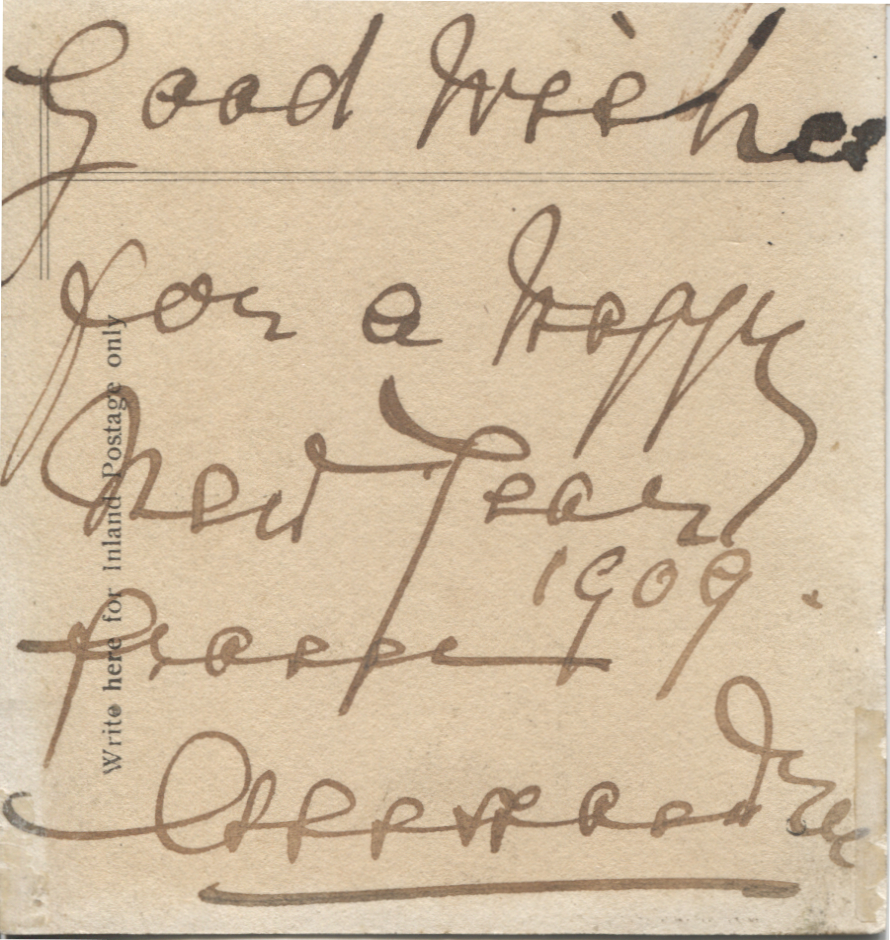 Good Wishes
for a happy
New Year
1909.
from
Alexandra
Write here for Inland Postage only